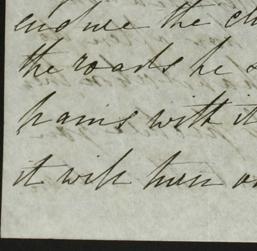 endure the cl
the roads he s
pains with it
it will turn o